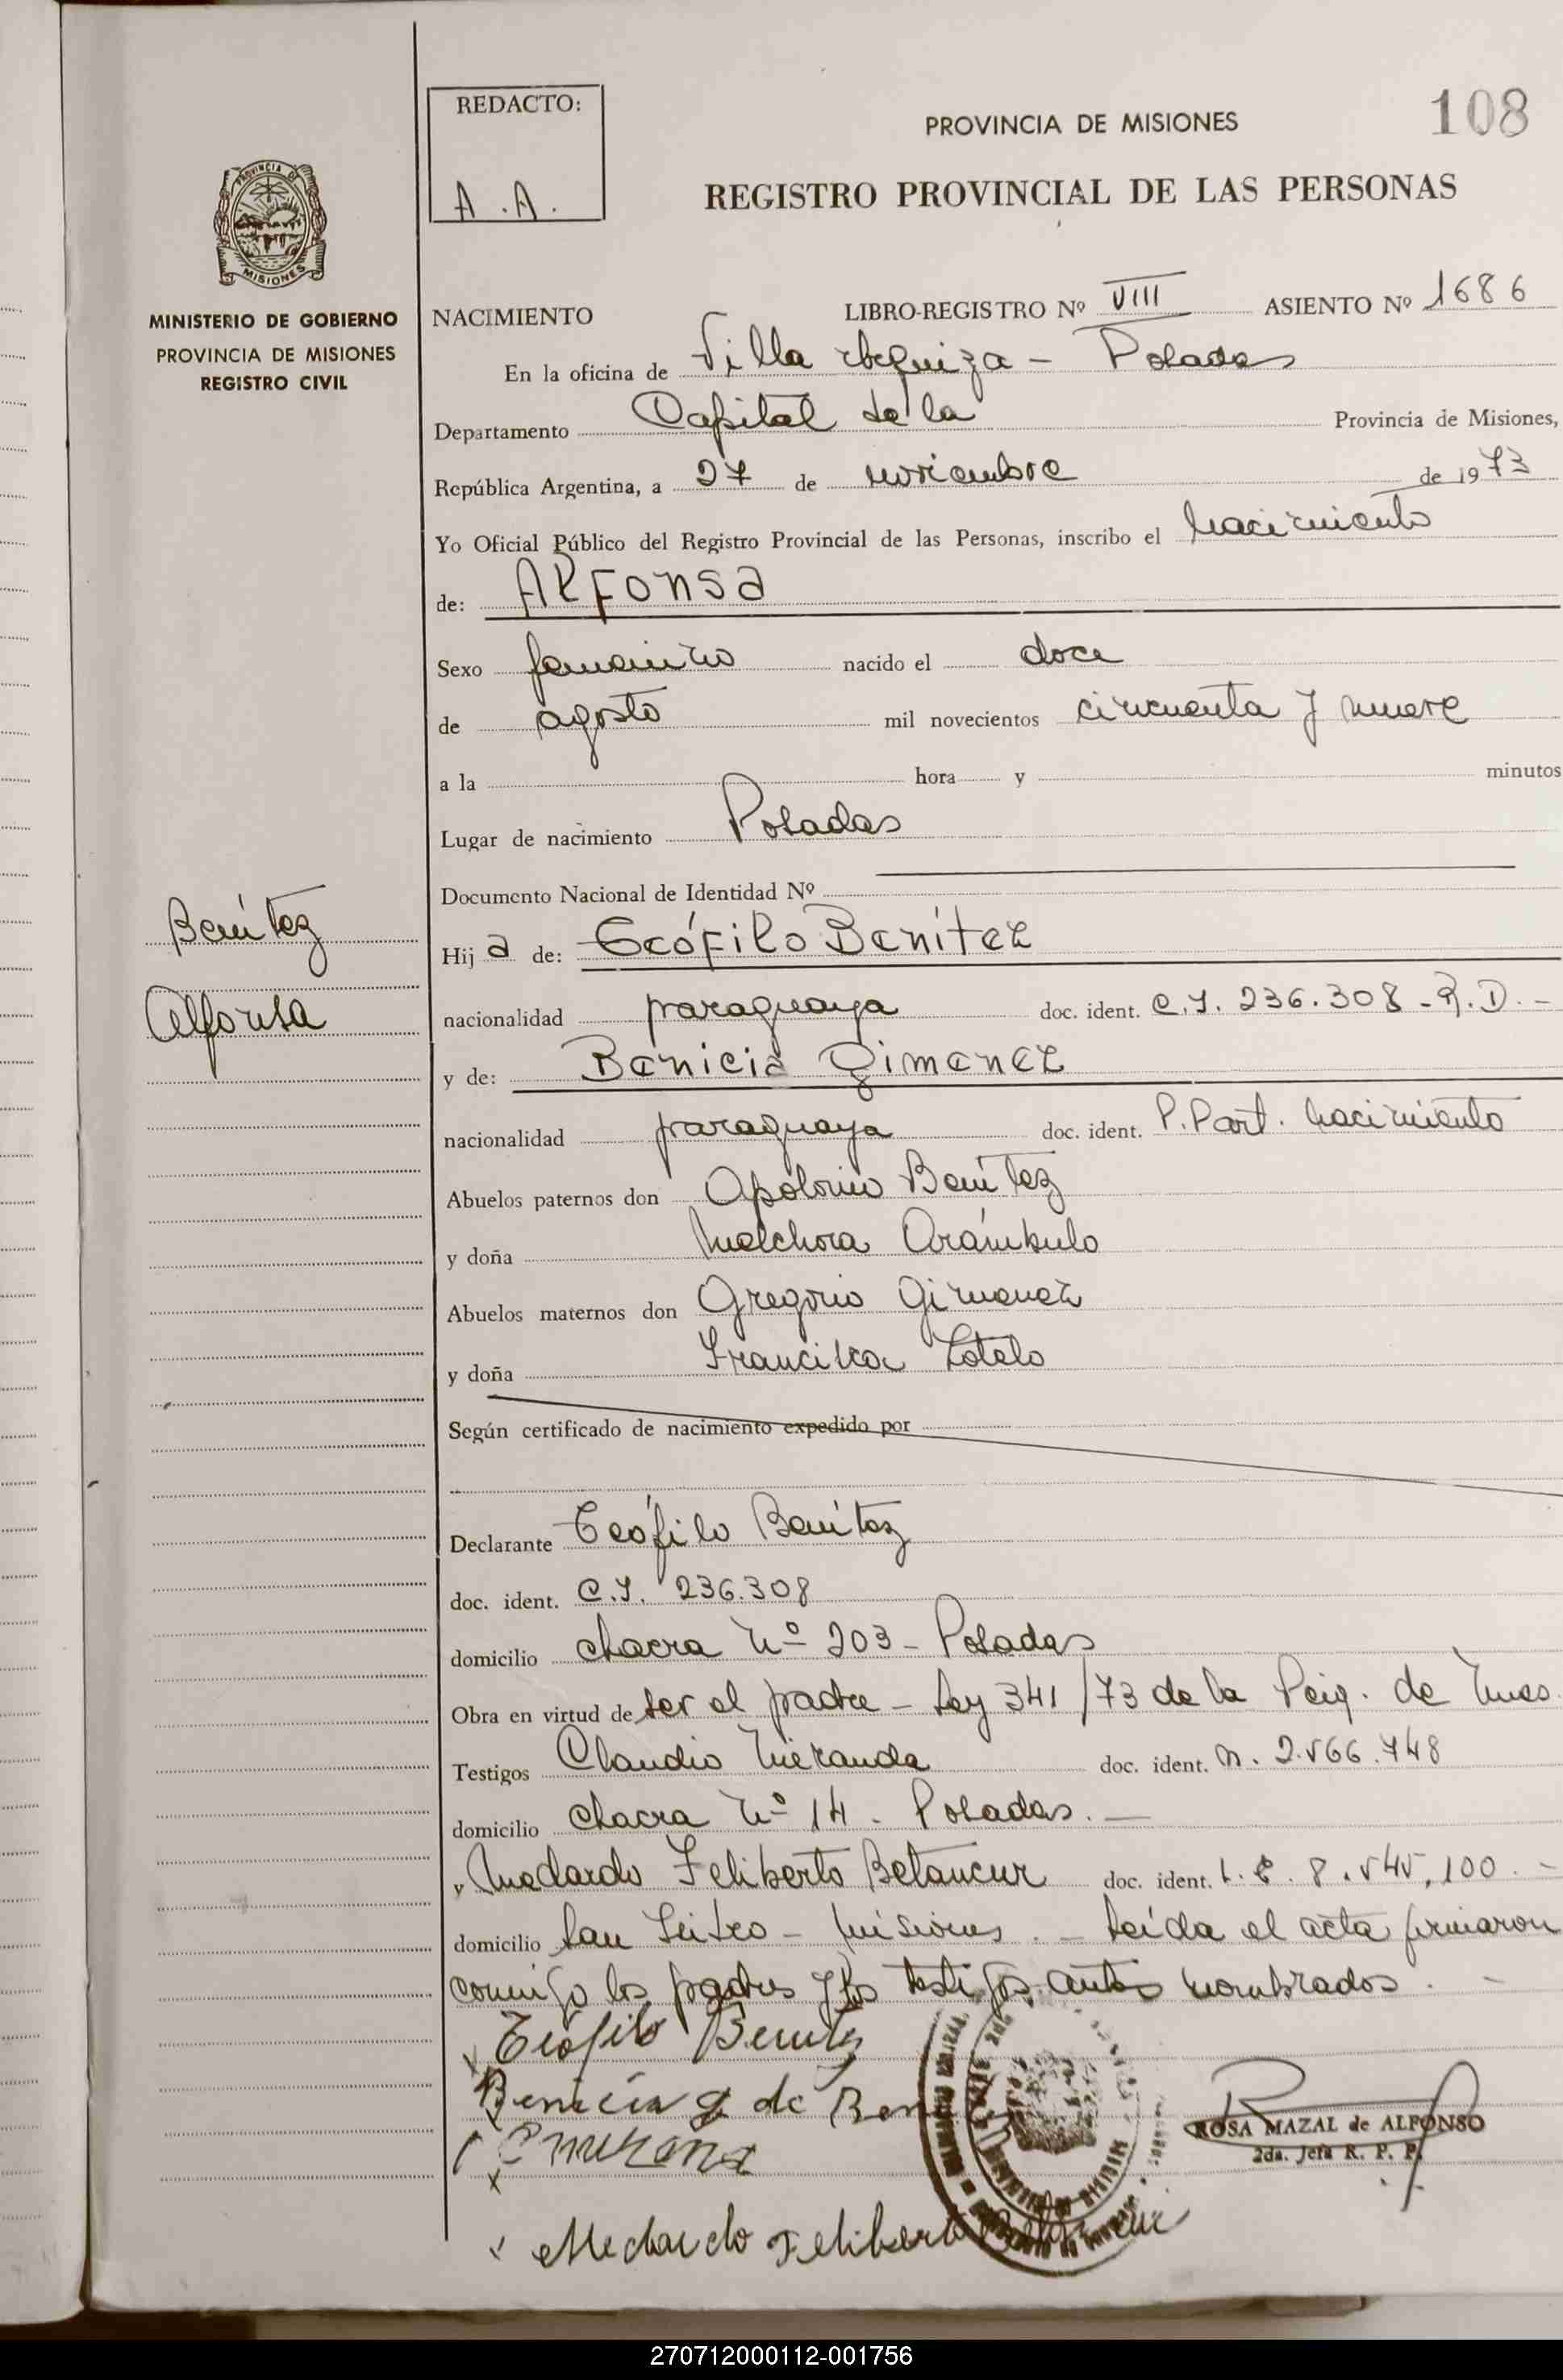 108
REDACTO:
A.A.
PROVINCIA DE MISIONES
REGISTRO PROVINCIAL DE LAS PERSONAS
PROVINCIA DE
MISIONES
MINISTERIO DE GOBIERNO
PROVINCIA DE MISIONES
REGISTRO CIVIL
NACIMIENTO LIBRO-REGISTRO Nº VIII ASIENTO Nº 1686
En la oficina de Villa Urquiza - Posadas
Departamento Capital de la Provincia de Misiones,
República Argentina, a 27 de noviembre de 1973
Yo Oficial Público del Registro Provincial de las Personas, inscribo el nacimiento
de: Alfonsa
Sexo femenino nacido el doce
de agosto mil novecientos cincuenta y nueve
a la hora y minutos
Lugar de nacimiento Posadas
Documento Nacional de Identidad Nº
Benítez
Alfonsa
Hij a de: Teófilo Benítez
nacionalidad paraguaya doc. ident. C.I. 236.308 - R.D. -
y de: Benicia Gimenez
nacionalidad paraguaya doc. ident. P. Part. nacimiento
Abuelos paternos don Apolonio Benítez
y doña Melchora Arámbulo
Abuelos maternos don Gregorio Gimenez
y doña Francisca Sotelo
Según certificado de nacimiento expedido por
Declarante Teófilo Benítez
doc. ident. C.I. 236.308
domicilio chacra Nº 203 - Posadas
Obra en virtud de ser el padre - Ley 341/73 de la de
Testigos Claudio Miranda doc. ident. M. 2.566.748
domicilio chacra Nº 14 - Posadas. -
y Medardo Feliberto Betancur doc. ident. L.E. 8.545.100. -
domicilio San Isidro - Misiones. - Leída el acta firmaron
conmigo los padres y los testigos antes nombrados. -
Teófilo Benitez
Benicia g de Ben
Medardo Feliberto Betancur
ROSA MAZAL de ALFONSO
2da. Jefa R. P. P.
270712000112-001756